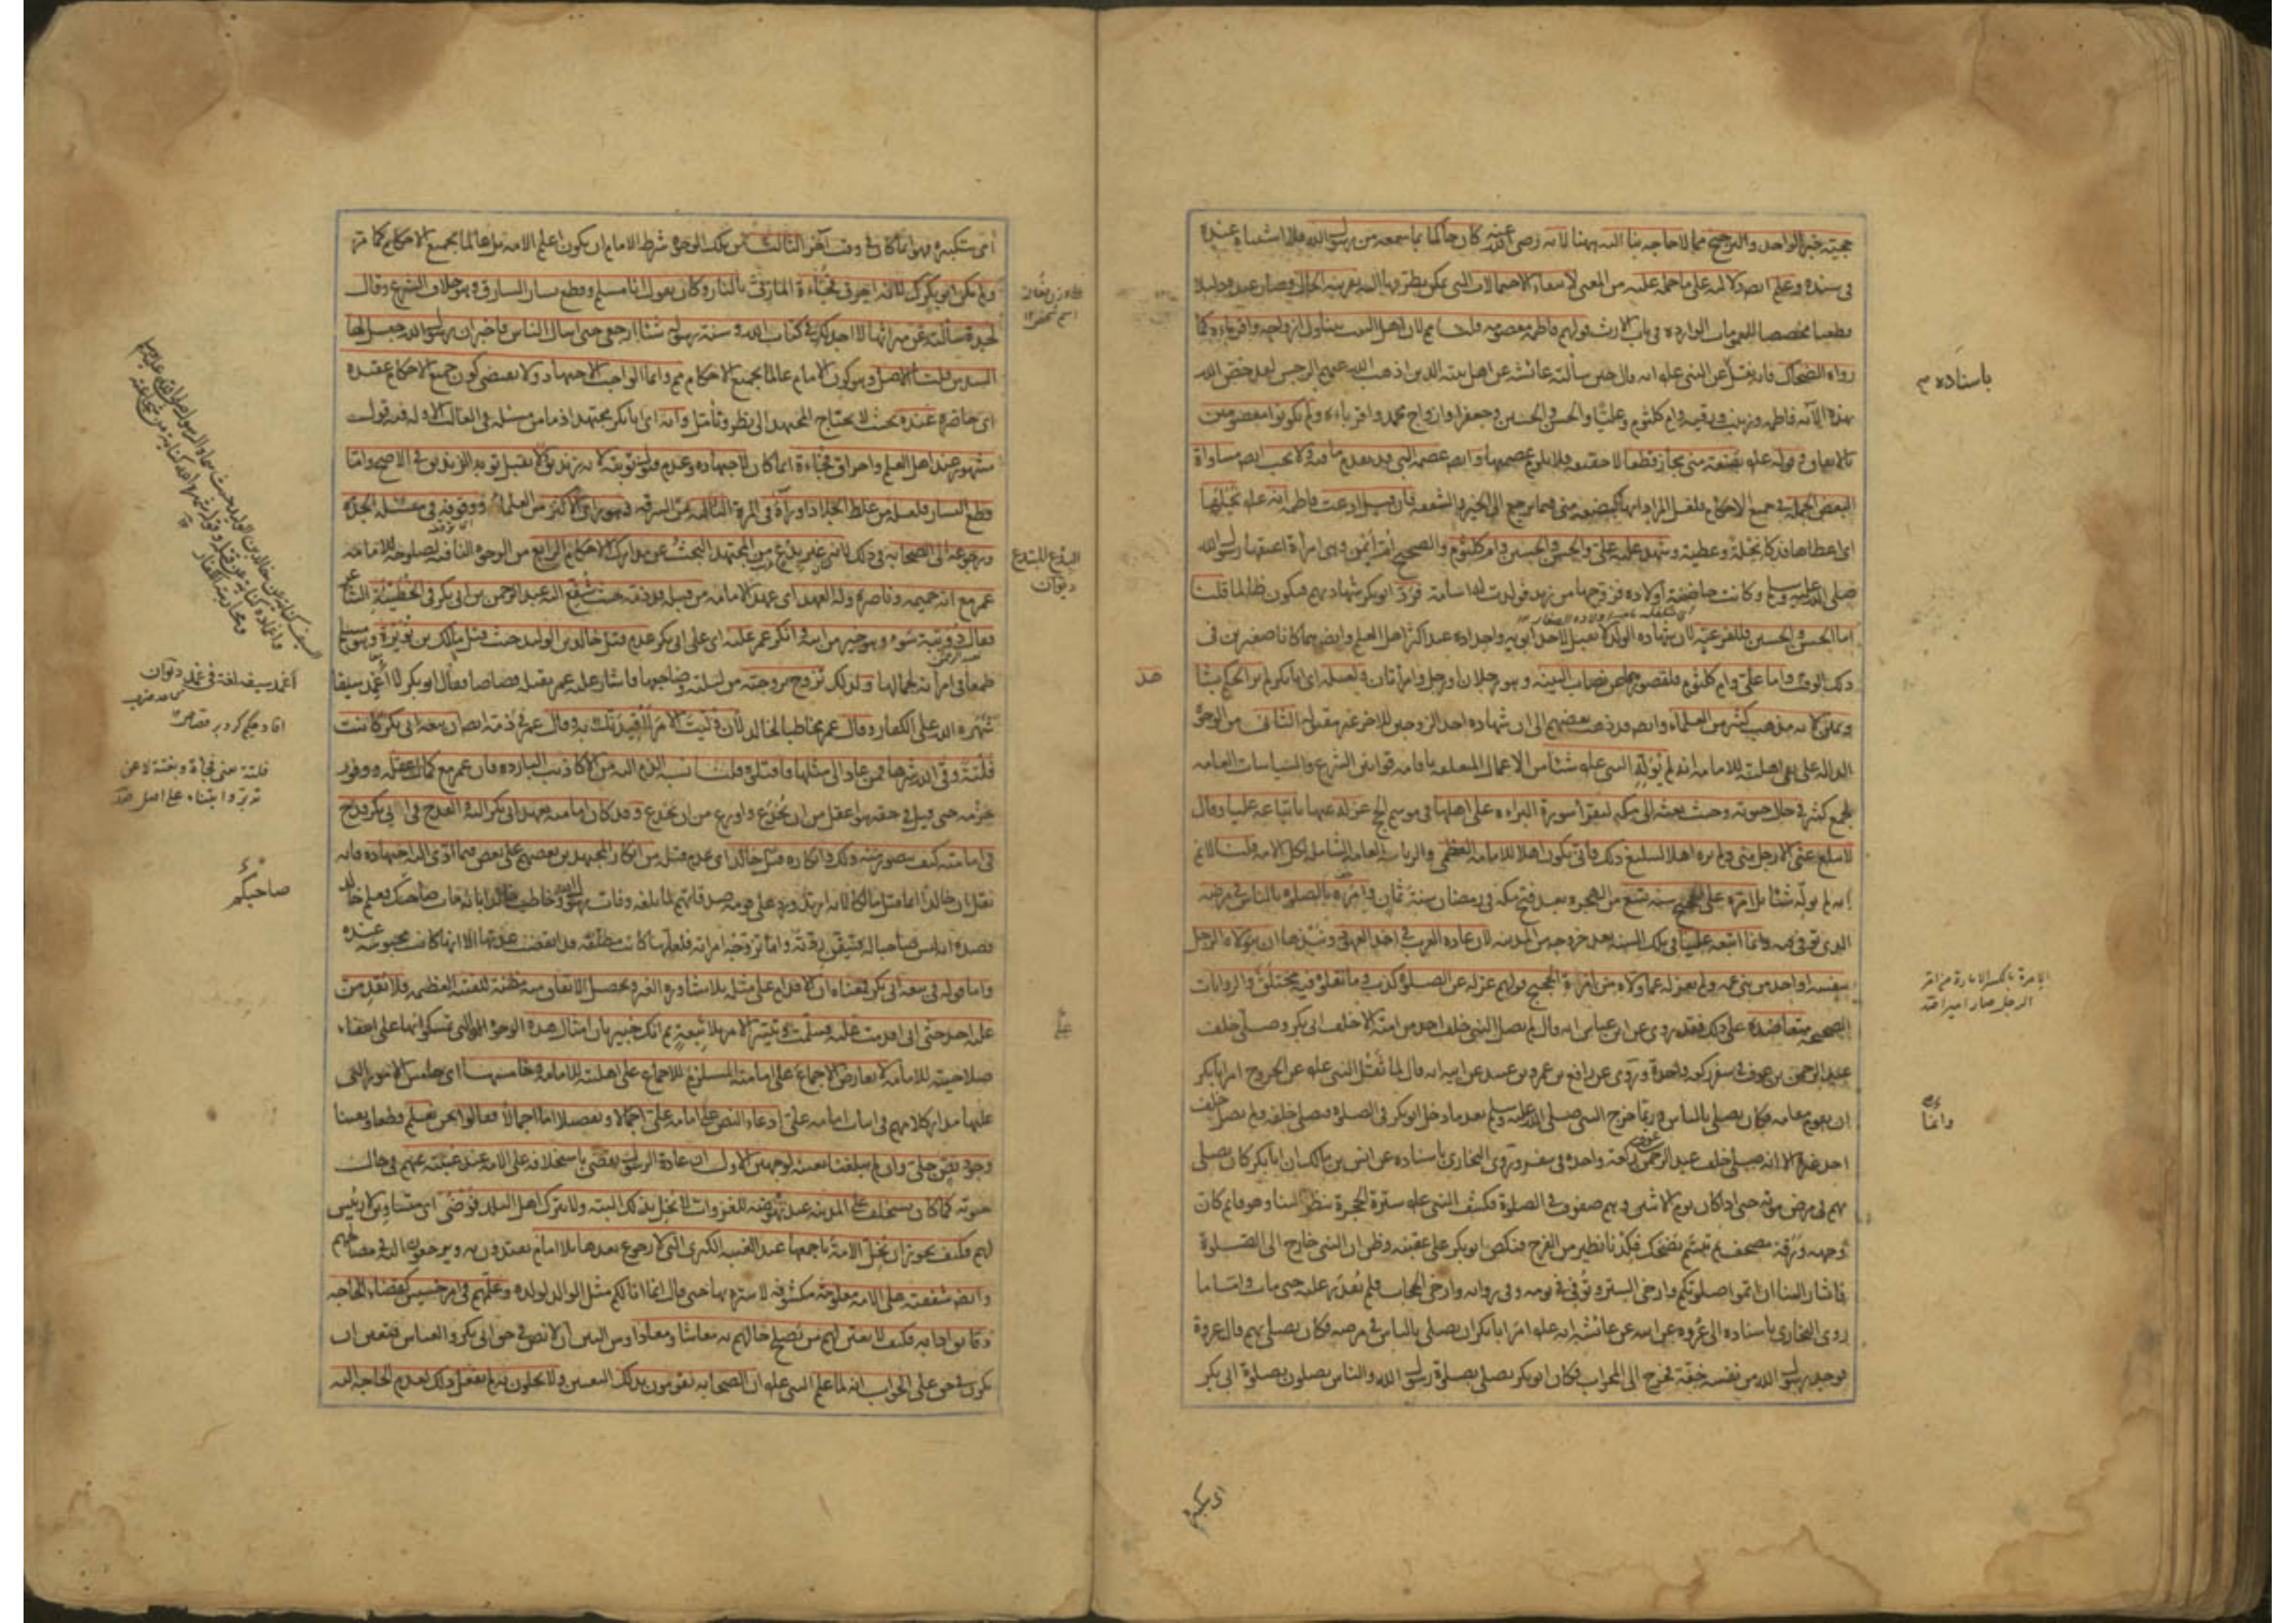 حجية خبر الواحد والترجيح مما لا حاجة بنا اليه ههنا لانه رضى الله عنه كان حاكما بما سمعه من رسول الله فلا اشتباه عنده
فى سنده وعلم ايضا دلالته على ما حمله عليه من المعنى لانتفاء الاحتمالات التى يمكن تطرقها اليه بقرينة الحال فصار عنده دليلا
قطعيا مخصصا للعمومات الواردة فى باب الارث قولهم فاطمة معصومة قلنا ممنوع لان اهل البيت يتناول ازواجه واقرباءه كما
رواه الضحاك فانه نقل عن النبى عليه انه قال حين سألته عائشة عن اهل بيته الذين اذهب الله عنهم الرجس لقد خص الله
بهذه الآية فاطمة وزينب ورقية وام كلثوم وعليا والحسن والحسين وجعفرا وازواج محمد واقرباءه ولم يكونوا معصومين
بالاتفاق وقوله عليه بضعة منى مجاز قطعا لا حقيقة فلا يلزم عصمتها وايضا عصمة النبى قد تقدم ما فيه ولا يجب ايضا مساواة
البعض الجملة فى جميع الاحكام فلعل المراد انها كبضعة منى فيما يرجع الى الخير والشفقة فان قيل ادعت فاطمة انه عليه نحلها
اى اعطاها فدكا نحلة وعطية وشهد عليه على والحسن والحسين وام كلثوم والصحيح ام ايمن وهى امرأة اعتقها رسول الله
صلى الله عليه وسلم وكانت حاضنة اولاده فزوجها من زيد فولدت له اسامة فرد ابو بكر شهادتهم فيكون ظالما قلنا
اما الحسن والحسين فللفرعية لان شهادة الولد لا تقبل لاحد ابويه واجداده عند اكثر اهل العلم وايضا هما كانا صغيرين فى
ذلك الوقت واما على وام كلثوم فلقصورهما عن نصاب البينة وهو رجلان او رجل وامرأتان ولعله اى ابا بكر لم ير الحكم بشاهد
ويمين لانه مذهب كثير من العلماء وايضا قد ذهب بعضهم الى ان شهادة احد الزوجين للآخر غير مقبولة الثانى من الوجوه
الدالة على نفى اهليته للامامة انه لم يوله النبى عليه شيئا من الاعمال المتعلقة باقامة قوانين الشرع والسياسات العامة
لجمع كثير فى حال حيوته وحيث بعثه الى مكة ليقرأ سورة البراءة على اهلها فى موسم الحج عزله عنها باتباعه عليا وقال
لا يبلغ عنى الا رجل منى ولم يره اهلا لتبليغ ذلك فانى يكون اهلا للامامة العظمى والرياسة العامة الشاملة لكل الامة قلنا لا نم
انه لم يوله شيئا بل امره على الحجيج سنة تسع من الهجرة بعد فتح مكة فى رمضان سنة ثمان وامره بالصلوة بالناس فى مرضه
الذى توفى فيه وانما اتبعه عليا فى تلك السنة بعد خروجه من المدينة لان عادة العرب فى اخذ العهود ونبذها ان يتولاه الرجل
بنفسه او احد من بنى عمه ولم يعزله عما ولاه من امارة الحجيج قولهم عزله عن الصلوة كذب وما نقلوه فيه مختلق والروايات
الصحيحة متعاضدة على ذلك فقد روى عن ابن عباس انه قال لم يصل النبى خلف احد من امته الا خلف ابى بكر وصلى خلف
عبد الرحمن بن عوف فى سفر ركعة واحدة وروى عن رافع بن عمرو بن عبيد عن ابيه انه قال لما ثقل النبى عليه عن الخروج امر ابا بكر
ان يقوم مقامه فكان يصلى بالناس وربما خرج النبى صلى الله عليه وسلم بعد ما دخل ابو بكر فى الصلوة فصلى خلفه ولم يصل خلف
احد غيره الا انه صلى خلف عبد الرحمن ركعة واحدة فى سفر وروى البخارى باسناده عن انس بن مالك ان ابا بكر كان يصلى
بهم فى مرض موته حتى اذا كان يوم الاثنين وهم صفوف فى الصلوة فكشف النبى عليه سترة الحجرة ينظر الينا وهو قائم كان
وجهه ورقة مصحف ثم تبسم يضحك فكدنا نطير من الفرح فنكص ابو بكر على عقبيه وظن ان النبى خارج الى الصلوة
فاشار الينا ان اتموا صلوتكم وارخى الستر وتوفى فى يومه وفى رواية وارخى الحجاب فلم نقدر عليه حتى مات واما ما
روى البخارى باسناده الى عروة عن ابيه عن عائشة انه عليه امر ابا بكر ان يصلى بالناس فى مرضه فكان يصلى بهم قال عروة
فوجد رسول الله من نفسه خفة فخرج الى المحراب فكان ابو بكر يصلى بصلوة رسول الله والناس يصلون بصلوة ابى بكر
باسناده
الامرة بالكسر الامارة من امر
الرجل صار اميرا
وانما
اى تكبيره
اى تكبيره فهو انما كان فى وقت آخر الثالث من تلك الوجوه شرط الامام ان يكون اعلم الامة بل عالما بجميع الاحكام كما مر
ولم يكن ابو بكر كذلك لانه احرق فجاءة المازنى بالنار وكان يقول انا مسلم وقطع يسار السارق وهو خلاف الشرع وقال
لجدة سألته عن ميراثها لا اجد لك فى كتاب الله وسنة رسوله شيئا ارجعى حتى اسأل الناس فاخبر ان رسول الله جعل لها
السدس قلنا الاصل وهو كون الامام عالما بجميع الاحكام مم وانما الواجب الاجتهاد ولا يقتضى كون جميع الاحكام عتيدة
اى حاضرة عنده بحيث لا يحتاج المجتهد الى نظر وتأمل وانه اى ابا بكر مجتهد اذ ما من مسئلة فى الغالب الا وله فيه قول
مشهور عند اهل العلم واحراق فجاءة انما كان لاجتهاده وعدم قبول توبته لانه زنديق ولا تقبل توبة الزنديق فى الاصح واما
قطع اليسار فلعله من غلط الجلاد او رآه فى المرة الثالثة من السرقة وهو رأى الاكثر من العلماء ووقوفه فى مسئلة الجدة
ورجوعه الى الصحابة فى ذلك لانه غير بدع من المجتهد البحث عن مدارك الاحكام الرابع من الوجوه النافية لصلوحه للامامة
عمر مع انه حميمه وناصره وله العهد اى عهد الامامة من قبله قد ذمه حيث شفع اليه عبد الرحمن بن ابى بكر فى الحطيئة الشاعر
فقال دويبة سوء وهو خير من ابيه وانكر عمر عليه اى على ابى بكر عدم قتل خالد بن الوليد حيث قتل مالك بن نويرة وهو مسلم
طمعا فى امرأته لجمالها ولذلك تزوج بزوجته من ليلته وضاجعها فاشار عليه عمر بقتله قصاصا فقال ابو بكر لا اغمد سيفا
شهره الله على الكفار وقال عمر مخاطبا لخالد لان وليت الامر لاقيدنك به وقال عمر فى ذمه ايضا ان بيعة ابى بكر كانت
فلتة وقى الله شرها فمن عاد الى مثلها فاقتلوه قلنا نسبة الذم اليه من الاكاذيب الباردة فان عمر مع كمال عقله ووفور
حزمه حتى قيل فى حقه هو اعقل من ان يخدع واورع من ان يخدع وقد كان امامته بعهد ابى بكر اليه القدح فى ابى بكر قدح
فى امامته كيف يتصور منه ذلك وانكاره قتل خالد اى عدم قتله من انكار المجتهدين بعضهم على بعض فيما ادى اليه اجتهاده فانه
نقل ان خالدا انما قتل مالكا لانه ارتد ورد على قومه صدقاتهم لما بلغه وفات رسول الله وخاطب خالدا بانه مات صاحبك فعلم خالد
قصده انه ليس صاحبا له فتيقن ردته واما تزوجه امراته فلعلها كانت مطلقة قد انقضت عدتها الا انها كانت محبوسة عنده
واما قوله فى بيعة ابى بكر فمعناه ان الاقدام على مثله بلا مشاورة الغير وتحصيل الاتفاق منه مظنة للفتنة العظيمة فلا يقدمن
عليه احد حتى انى اقدمت عليه فسلمت وتيسر الامر بلا تبعة ثم انك خبير بان امثال هذه الوجوه التى تمسكوا بها على انتفاء
صلاحيته للامامة لا يعارض الاجماع على امامته المستلزم للاجماع على اهليته للامامة وخامسها اى خامس الامور التى
عليها مدار كلامهم فى اثبات امامة على ادعاء النص على امامة على اجمالا وتفصيلا اما اجمالا فقالوا نحن نعلم قطعا ويقينا
وجود نص جلى وان لم يبلغنا بعينه لوجهين الاول ان عادة الرسول تقضى باستخلافه على الامة عند غيبته عنهم فى حال
حيوته كما كان يستخلف على المدينة عند نهوضه للغزوات لا يخل بذلك البتة ولا يترك اهل البلد فوضى اى متساوين لا رئيس
لهم فكيف يجوز ان يخلى الامة باجمعها عند الغيبة الكبرى التى لا رجوع بعدها بلا امام يقتدون به ويرجعون اليه فى مصالحهم
وايضا شفقته على الامة معلومة مكشوفة لا سترة بها حتى قال انما انا لكم مثل الوالد لولده وعلمهم فى امر خسيس كقضاء الحاجة
دقائق آدابه فكيف لا يعين لهم من يصلح حالهم به معاشا ومعادا ومن البين ان لا نص فى حق ابى بكر والعباس فتعين ان
يكون فى حق على الجواب انه لما علم النبى عليه ان الصحابة يقومون بذلك التعيين ولا يخلون به لم يفعل ذلك لعدم الحاجة اليه
البدع المبتدع
ديوان
اغمد سيفه لغة فى غمده ديوان
فلتة يعنى فجاءة وبغتة لا عن
صاحبكم